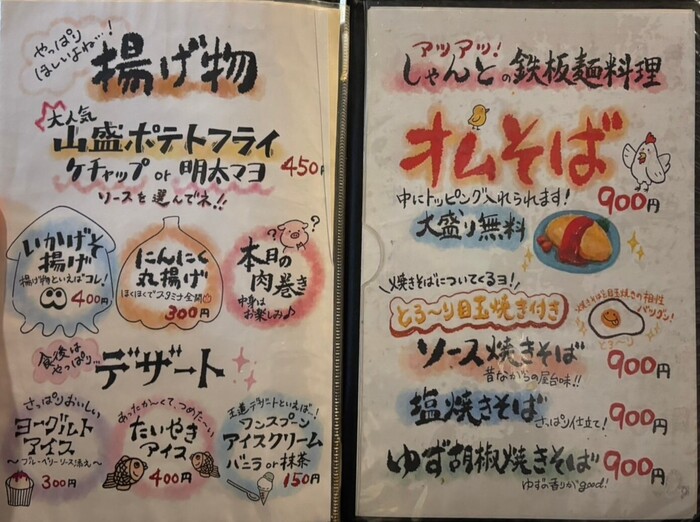 やっぱり
ほしいよね…!
揚げ物
大人気
山盛ポテトフライ
ケチャップ or 明太マヨ 450円
ソースを選んでネ!!
いかげそ
揚げ
揚げ物といえばコレ!
400円
にんにく
丸揚げ
ほくほくでスタミナ全開
300円
本日の
肉巻き
中身は
お楽しみ♪
食後は
やっぱり…
デザート
さっぱりおいしい
ヨーグルト
アイス
〜ブルーベリーソース添え〜
300円
あったかくて、つめた〜い
たいやき
アイス
400円
王道デザートといえば…!
ワンスプーン
アイスクリーム
バニラ or 抹茶
150円
アツアツ!
しゃんとの鉄板麺料理
オムそば
中にトッピング入れられます! 900円
大盛り無料
焼きそばについてくるヨ!
とろ〜り目玉焼き付き
焼きそばと目玉焼きの相性
バツグン!
とろ〜り
ソース焼きそば 900円
昔ながらの屋台味!!
塩焼きそば 900円
さっぱり仕立て!
ゆず胡椒焼きそば 900円
ゆずの香りがgood!